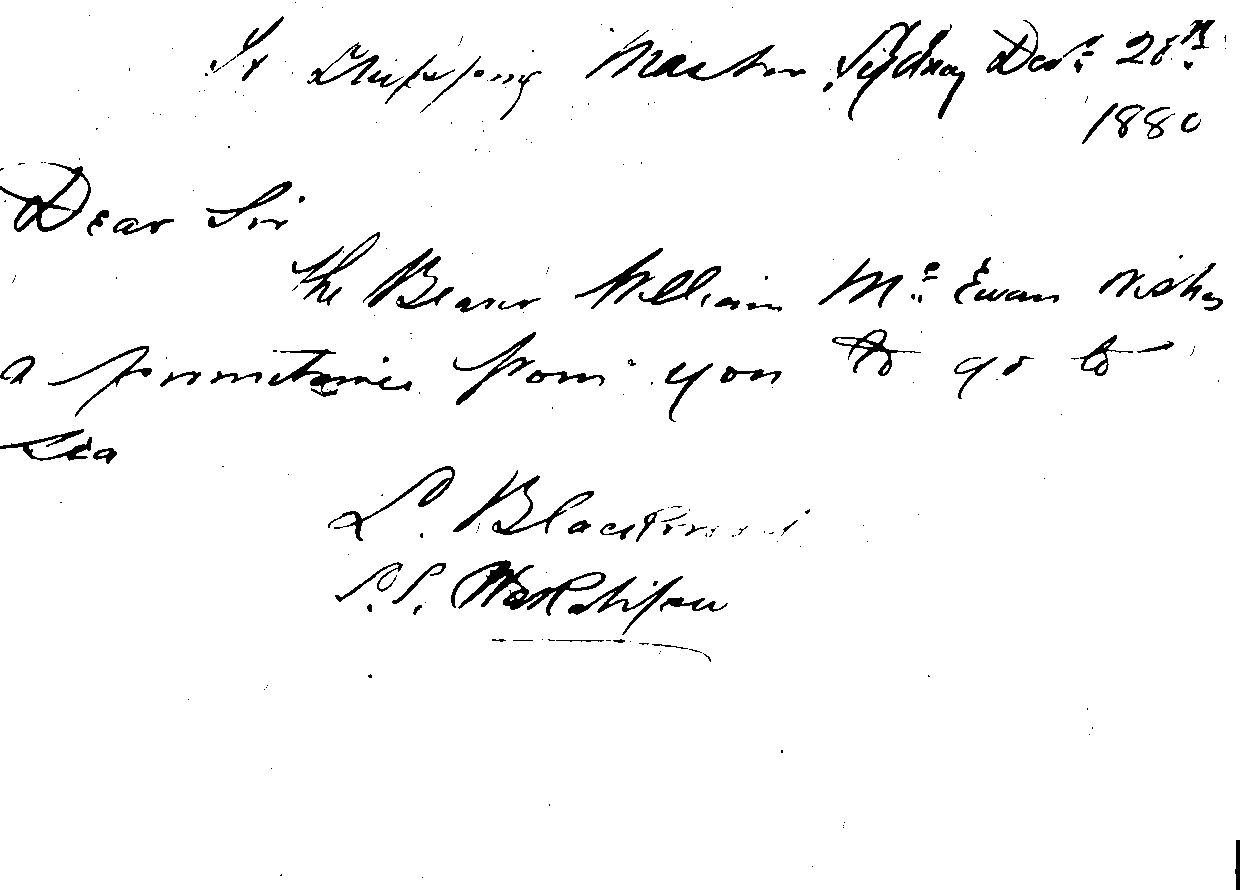 To Shipping Master, Sydney Decr 28th
1880
Dear Sir
the Bearer William Mc Ewan Wishes
a from you to go to
Sea
S. Blackwood
S.S. Wakatipu